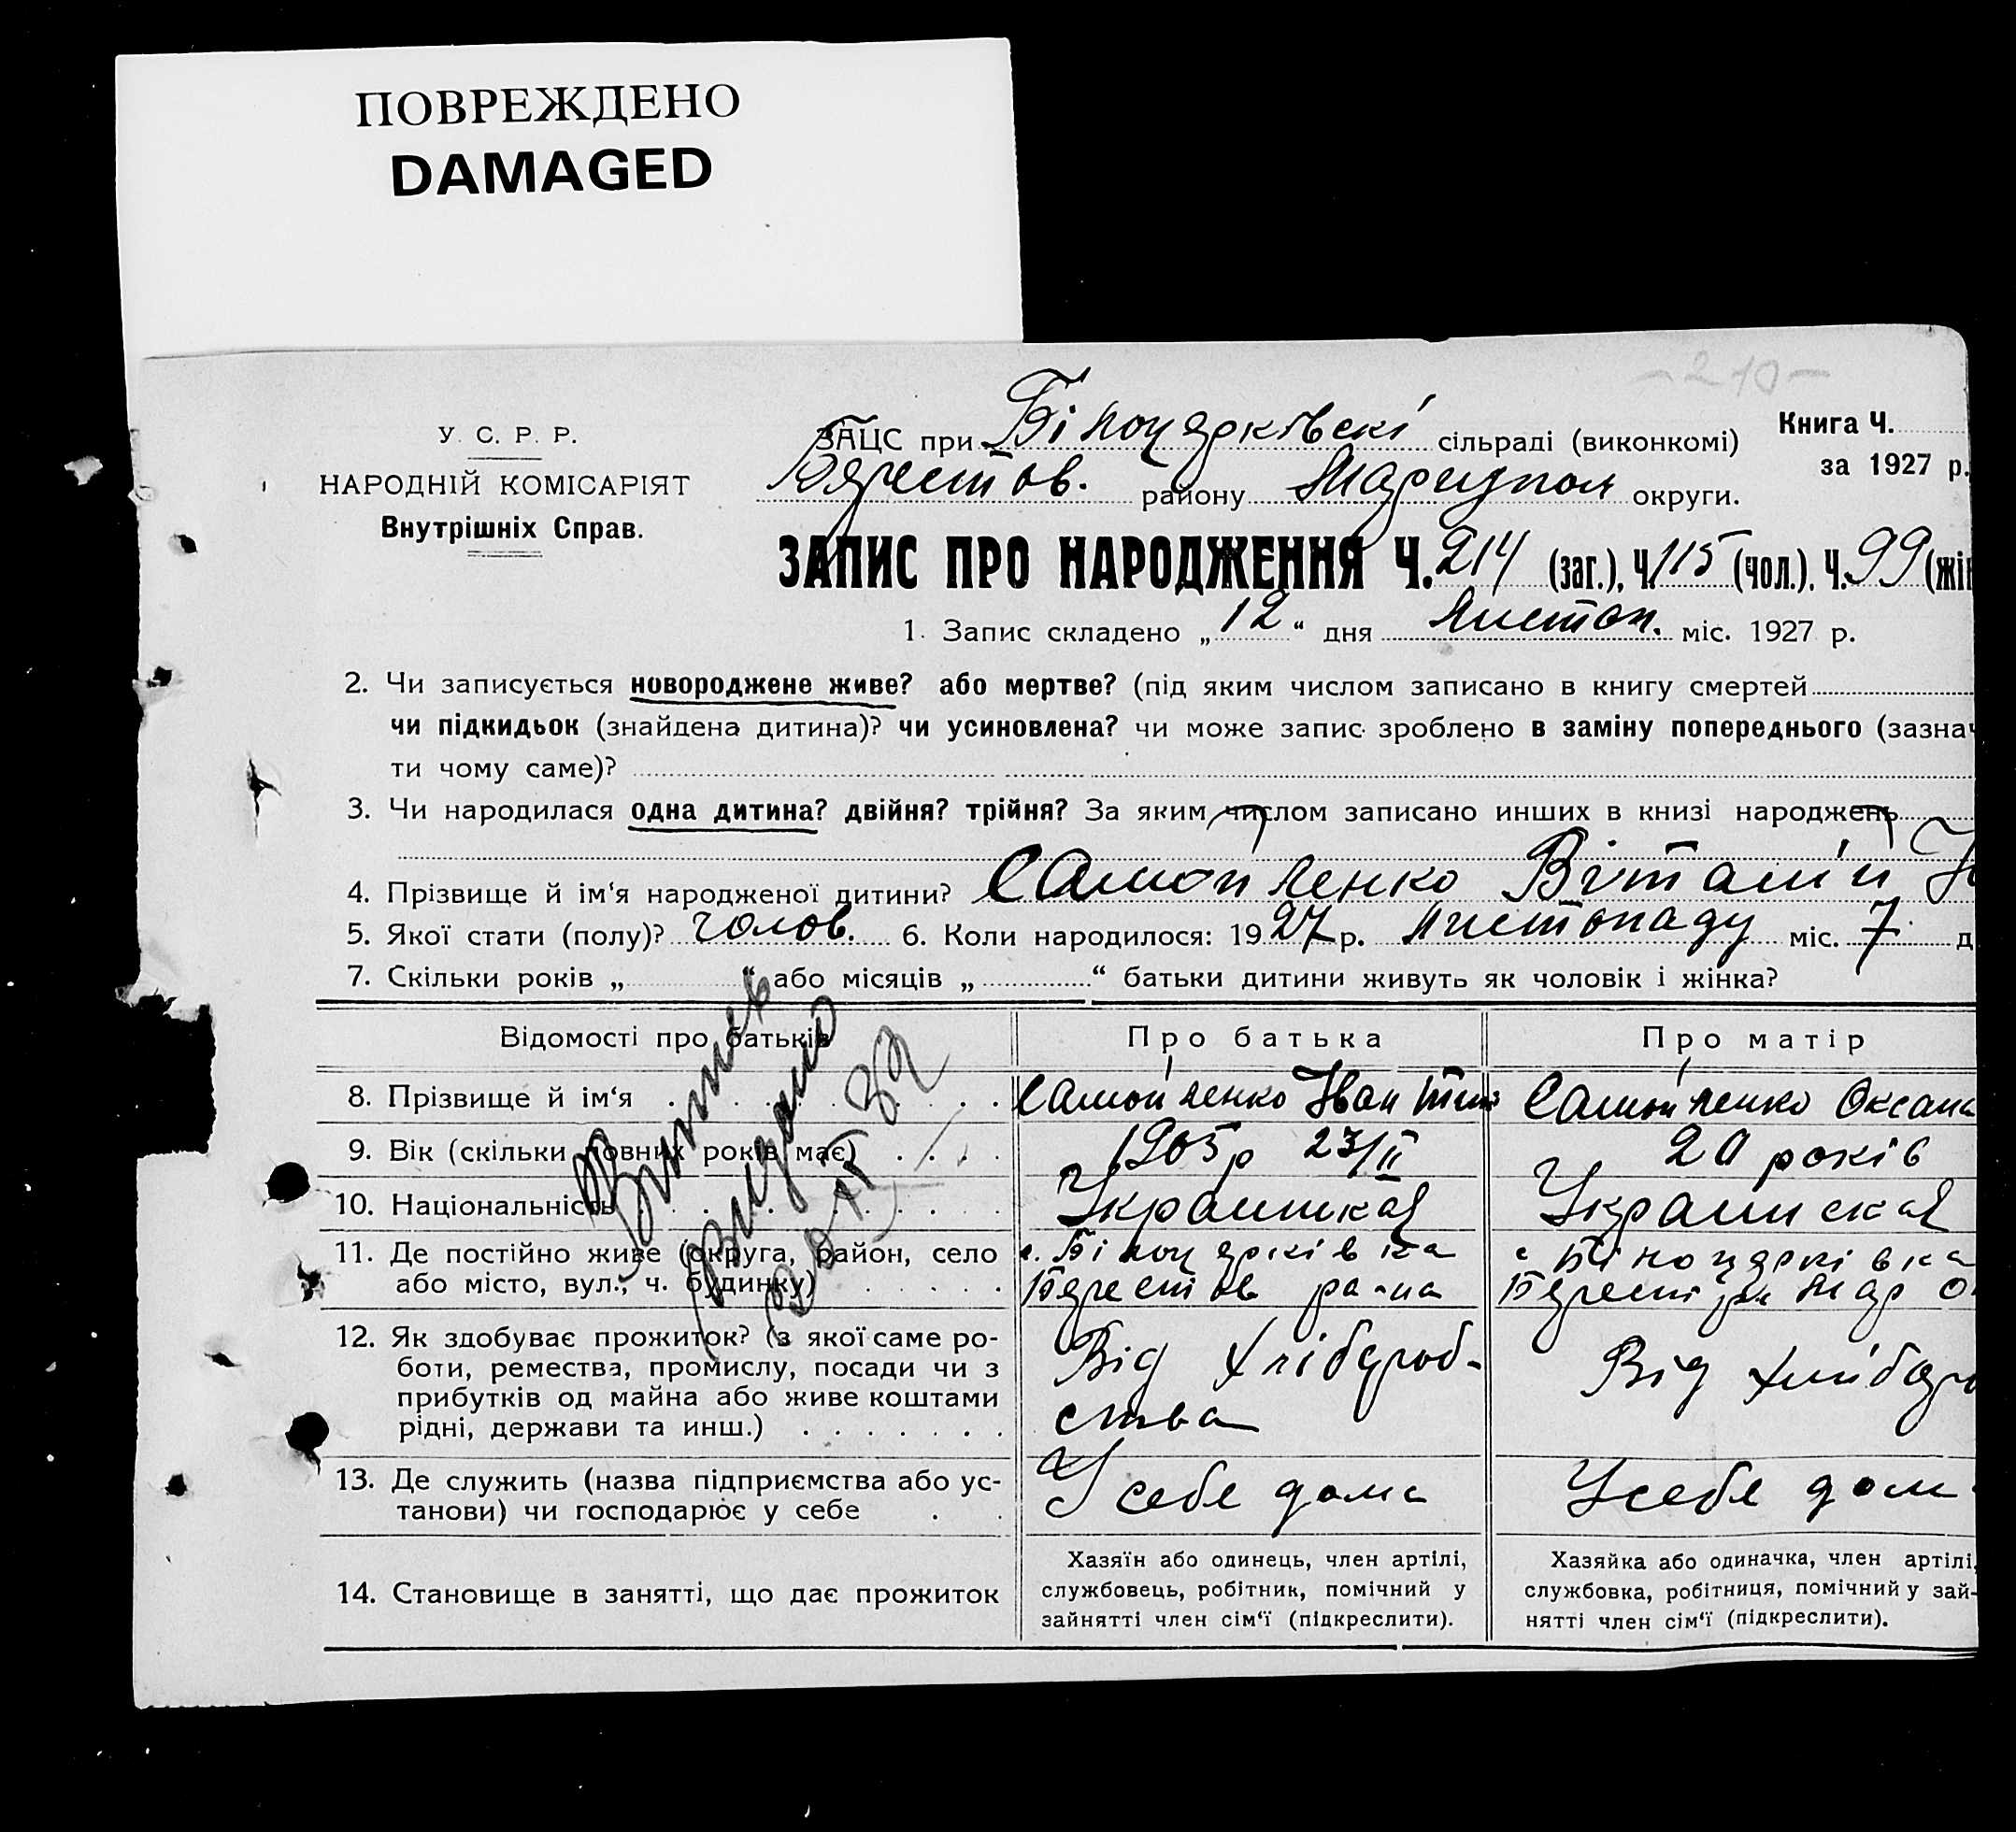 ПОВРЕЖДЕНО
DAMAGED
-210-
У. С. Р. Р.
НАРОДНІЙ КОМІСАРІЯТ
Внутрішніх Справ.
ЗАЦС при Білоцерківскі сільраді (виконкомі)
Книга Ч.
за 1927 р.
району Маріупол округи.
ЗАПИС ПРО НАРОДЖЕННЯ Ч. 214 (заг.), Ч. 115 (чол.). Ч. 99 (жін
1. Запис складено „ 12 “ дня Листоп. міс. 1927 р.
2. Чи записується новороджене живе? або мертве? (під яким числом записано в книгу смертей
чи підкидьок (знайдена дитина)? чи усиновлена? чи може запис зроблено в заміну попереднього (зазнач
ти чому саме)?
3. Чи народилася одна дитина? двійня? трійня? За яким числом записано инших в книзі народжень
4. Прізвище й ім‘я народженої дитини? Самойленко Віталій
5. Якої стати (полу)? чолов. 6. Коли народилося: 1927 р. Листопаду міс. 7 д
7. Скільки років „ “ або місяців „ “ батьки дитини живуть як чоловік і жінка?
Відомості про батьків
Про батька
Про матір
8. Прізвище й ім‘я
Самойленко Іван
Самойленко Оксана
9. Вік (скільки повних років має)
1905 р 23/II
20 років
10. Національність
11. Де постійно живе (округа, район, село
або місто, вул., ч. будинку)
с. Білоцерківка
ра-на
с Білоцерківка
12. Як здобуває прожиток? (з якої саме ро-
боти, ремества, промислу, посади чи з
прибутків од майна або живе коштами
рідні, держави та инш.)
Від хлібороб-
ства
Від
13. Де служить (назва підприємства або ус-
танови) чи господарює у себе
У себе дома
У себе дом
14. Становище в занятті, що дає прожиток
Хазяїн або одинець, член артілі,
службовець, робітник, помічний у
зайнятті член сім‘ї (підкреслити).
Хазяйка або одиначка, член артілі,
службовка, робітниця, помічний у зай-
нятті член сім‘ї (підкреслити).